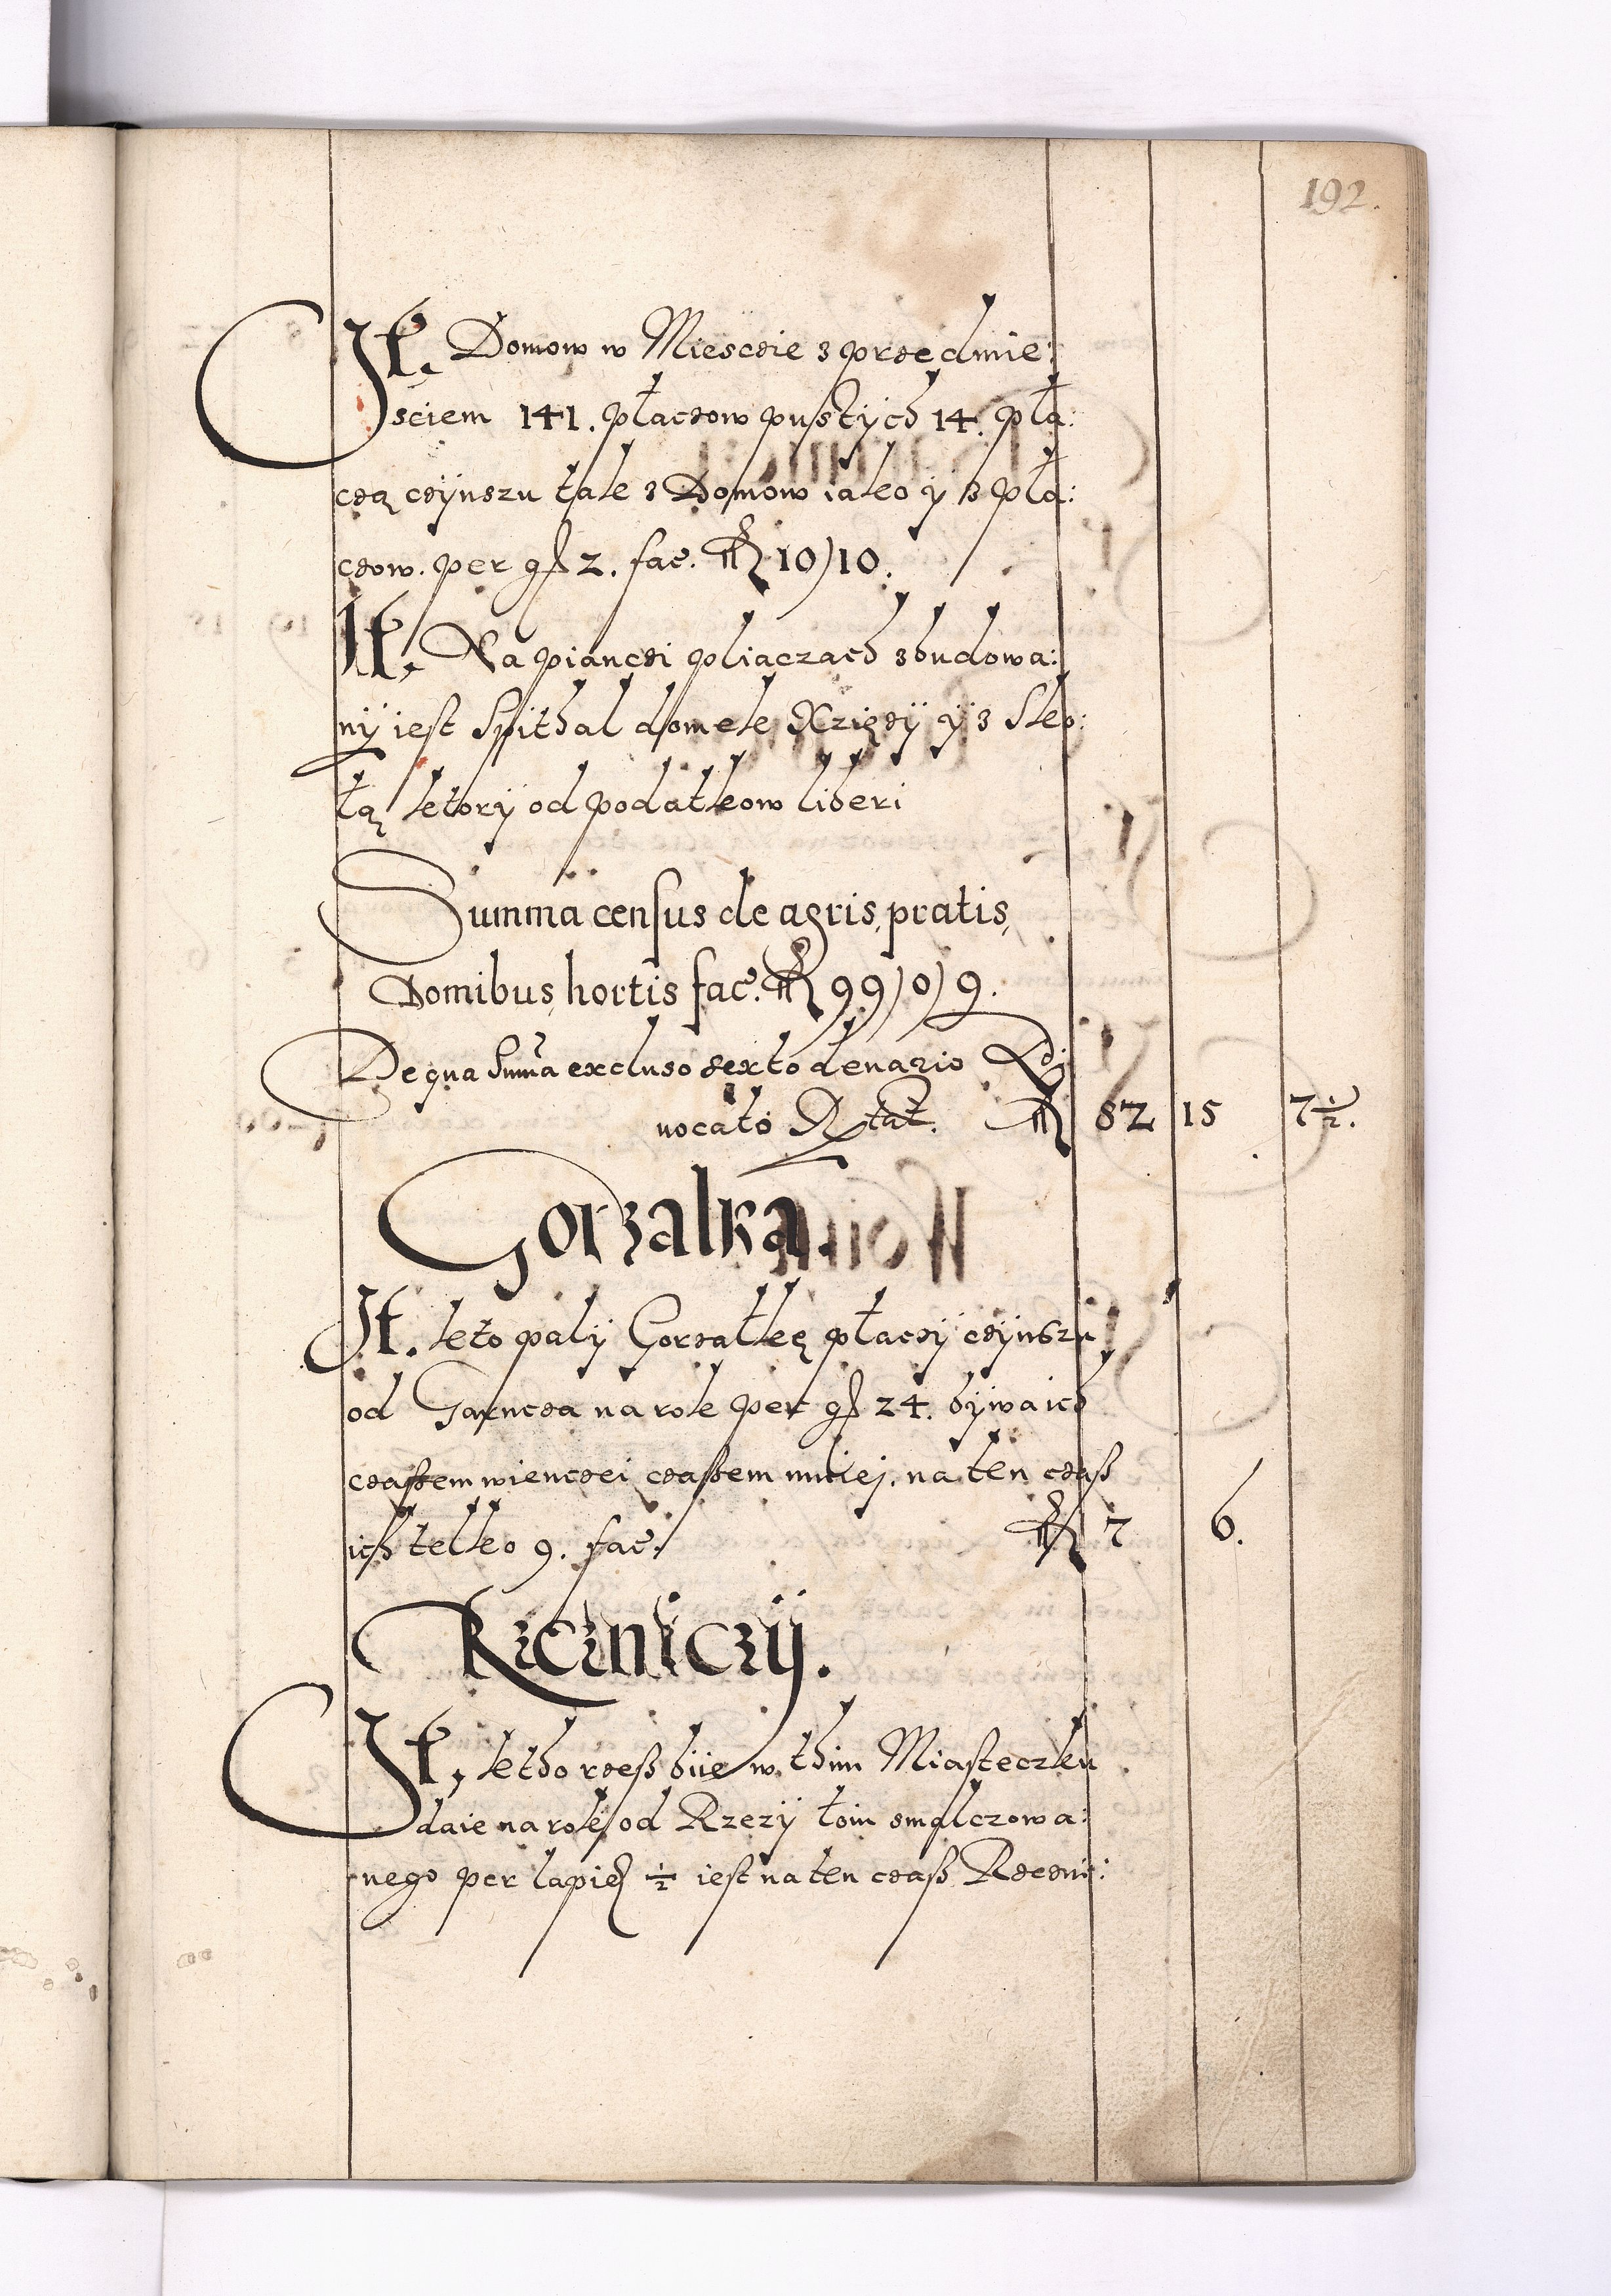 192.
It. Domow w Miesczie z przedmie:
sciem 141. płaczow pustych 14. pła:
czą czynszu tak z Domow iako y z pła:
czow. per gſ 2. fac. fl 10)10.
It. Na pianczi pliaczach zbudowa:
ny iest Spithal domek Xziężÿ ÿ z Sko:
łą ktorÿ od podatkow liberi
Summa census de agris, pratis,
Domibus, hortis fac. fl 99)0)9.
De qua Suma excluso sexto denario Ad
uocato Rstat. fl 82 15 7½.
Gorzalka.
It. kto palÿ Gorzałkę płaczÿ czÿnszu
od Garncza na rok per gſ 24. bÿwa ich
czaßem wienczei czaßem mniej. na ten czaß
ich telko 9. fac. fl 7 6.
Rzezniczÿ.
It, ktho rzeß biie w thim Miasteczku
daie na rok od Rzezÿ łoiu smalczowa:
nego per lapid ½ iest na ten czaß Rzezni: